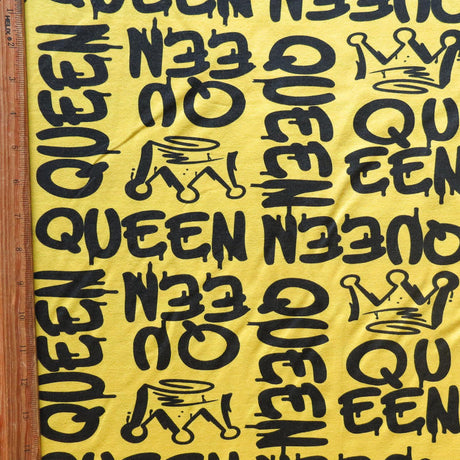 QUEEN
QUEEN
QUEEN
QUEEN
QU
EEN
QUEEN
QUEEN
QUEEN
QUEEN
QUEEN
QU
EEN